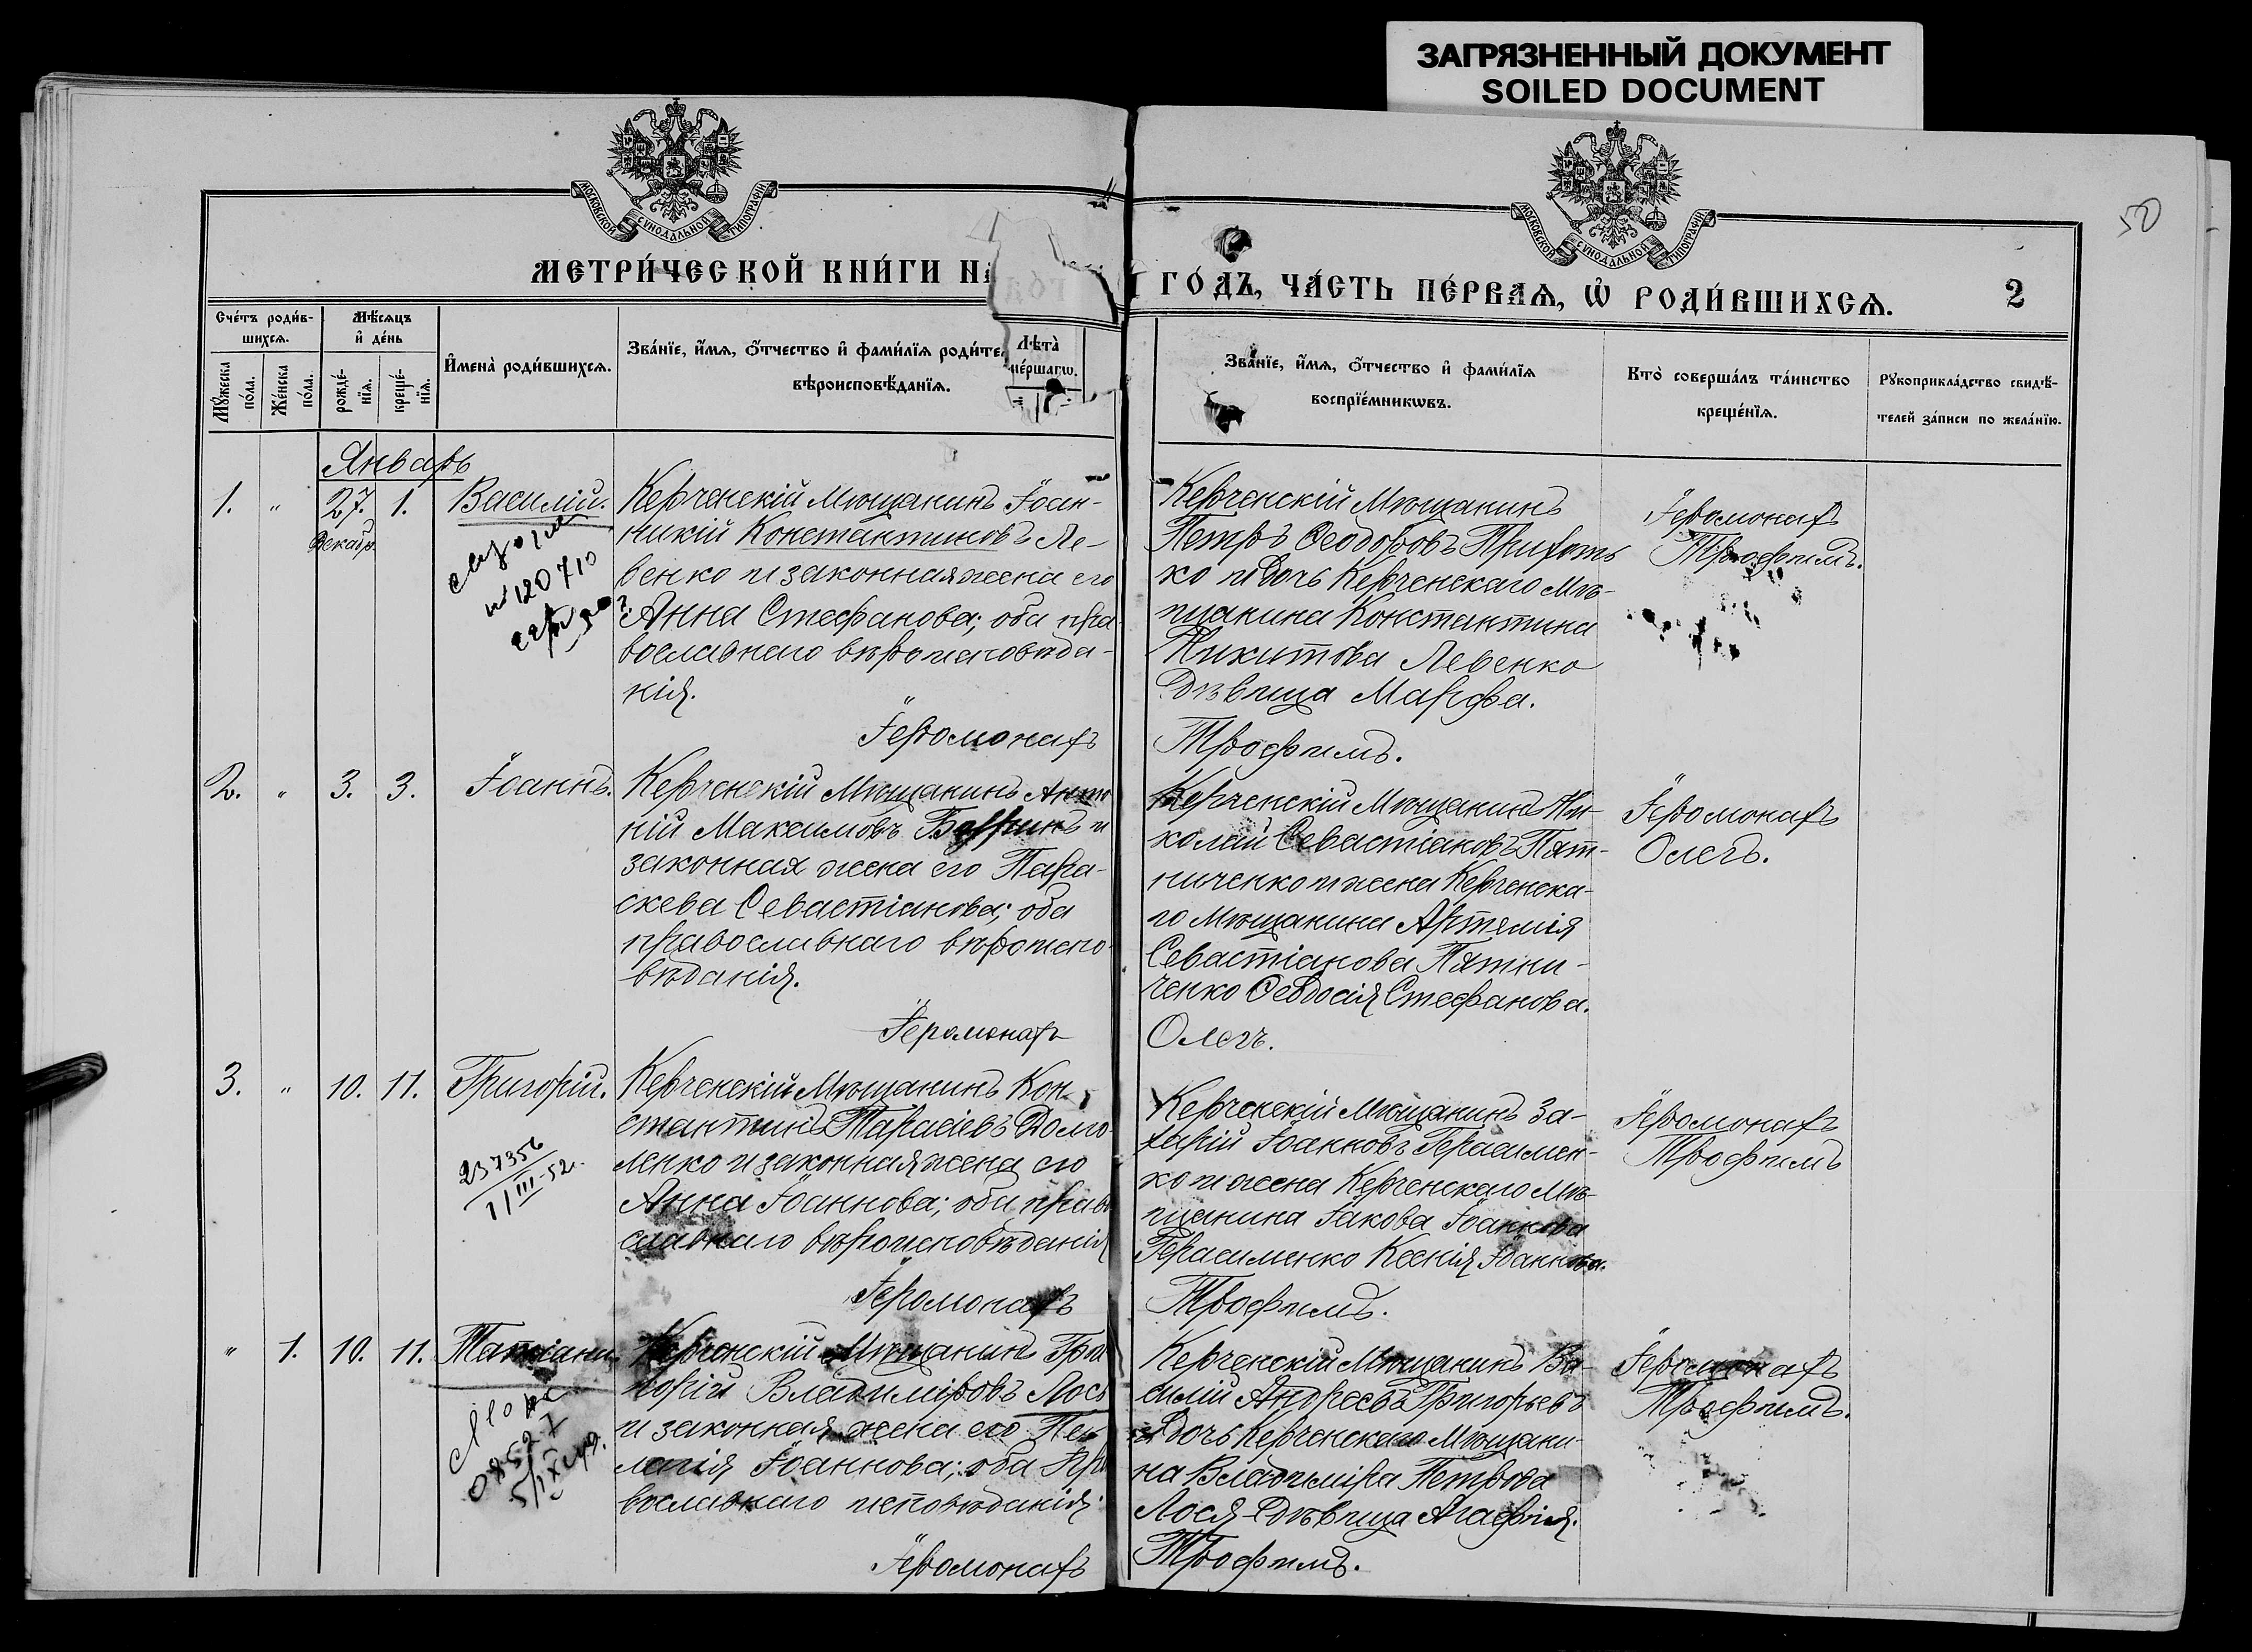 ЗАГРЯЗНЕННЫЙ ДОКУМЕНТ
SOILED DOCUMENT
50
МОСКОВСКОЙ СУНОДАЛЬНОЙ ТИПОГРАФІИ
МОСКОВСКОЙ СУНОДАЛЬНОЙ ТИПОГРАФІИ
МЕТРИ́ЧЕСКОЙ КНИ́ГИ НА
ГО́ДЪ, ЧА́СТЬ ПЕ́РВАѦ, Ѡ҆ РОДИ́ВШИХСѦ.
2
Сче́тъ роди́в-
шихсѧ.
Мꙋ́жеска
по́ла.
Же́нска
по́ла.
Мѣ́сяцъ
и҆ де́нь
рожде́-
нїѧ.
креще́-
нїѧ.
И҆мена̀ роди́вшихсѧ.
Зва́нїе, и҆́мѧ, ѻ҆́тчество и҆ фами́лїѧ роди́те
вѣроисповѣ́данїѧ.
Лѣта̀
ме́ршагѡ.
Зва́нїе, и҆́мѧ, ѻ҆́тчество и҆ фами́лїѧ
воспрїе́мникѡвъ.
Кто̀ соверша́лъ та́инство
креще́нїѧ.
Рꙋкоприкла́дство свидѣ́-
телей за́писи по жела́нїю.
Январь
1. " 27. 1. Василій.
Декабр.
№ 120710
Керченскій Мѣщанинъ Іоан-
никій Константиновъ Ле-
венко и законная жена его
Анна Стефанова; оба пра
вославнаго вѣроисповѣда-
нія.
Іеромонахъ
Керченскій Мѣщанинъ
Петръ Ѳеодоровъ Приходь
ко и дочь Керченскаго Мѣ-
щанина Константина
Никитова Левенко
Дѣвица Марѳа.
Трофимъ.
Іеромонахъ
Трофимъ.
2. " 3. 3. Іоаннъ.
Керченскій Мѣщанинъ Анто
ній Максимовъ и
законная жена его Пара-
скева Севастіанова; оба
православнаго вѣроиспо-
вѣданія.
Іеромонахъ
Керченскій Мѣщанинъ Ни-
колай Севастіановъ Пят-
ниченко и жена Керченска-
го Мѣщанина Артемія
Севастіанова Пятни-
ченко Ѳеодосія Стефанова.
Олегъ.
Іеромонахъ
Олегъ.
3. " 10. 11. Григорій.
237356
1/III-52г.
Керченскій Мѣщанинъ Кон-
стантинъ Тарасіевъ Долго-
ленко и законная жена его
Анна Іоаннова; оба право
славнаго вѣроисповѣданія
Іеромонахъ
Керченскій Мѣщанинъ За-
харій Іоанновъ Герасимен-
ко и жена Керченскаго Мѣ-
щанина Іакова Іоаннова
Герасименко Ксенія Іоаннова.
Трофимъ.
Іеромонахъ
Трофимъ
" 1. 10. 11. Татіана
Керченскій Мѣщанинъ Гри
горій Владиміровъ Лось
и законная жена его Пе
лагія Іоаннова; оба пра
вославнаго исповѣданія.
Іеромонахъ
Керченскій Мѣщанинъ Ва-
силій Андреевъ Григорьевъ
и дочь Керченскаго Мѣщани-
на Владиміра Петрова
Лося - дѣвица Агафія.
Трофимъ.
Іеромонахъ
Трофимъ.